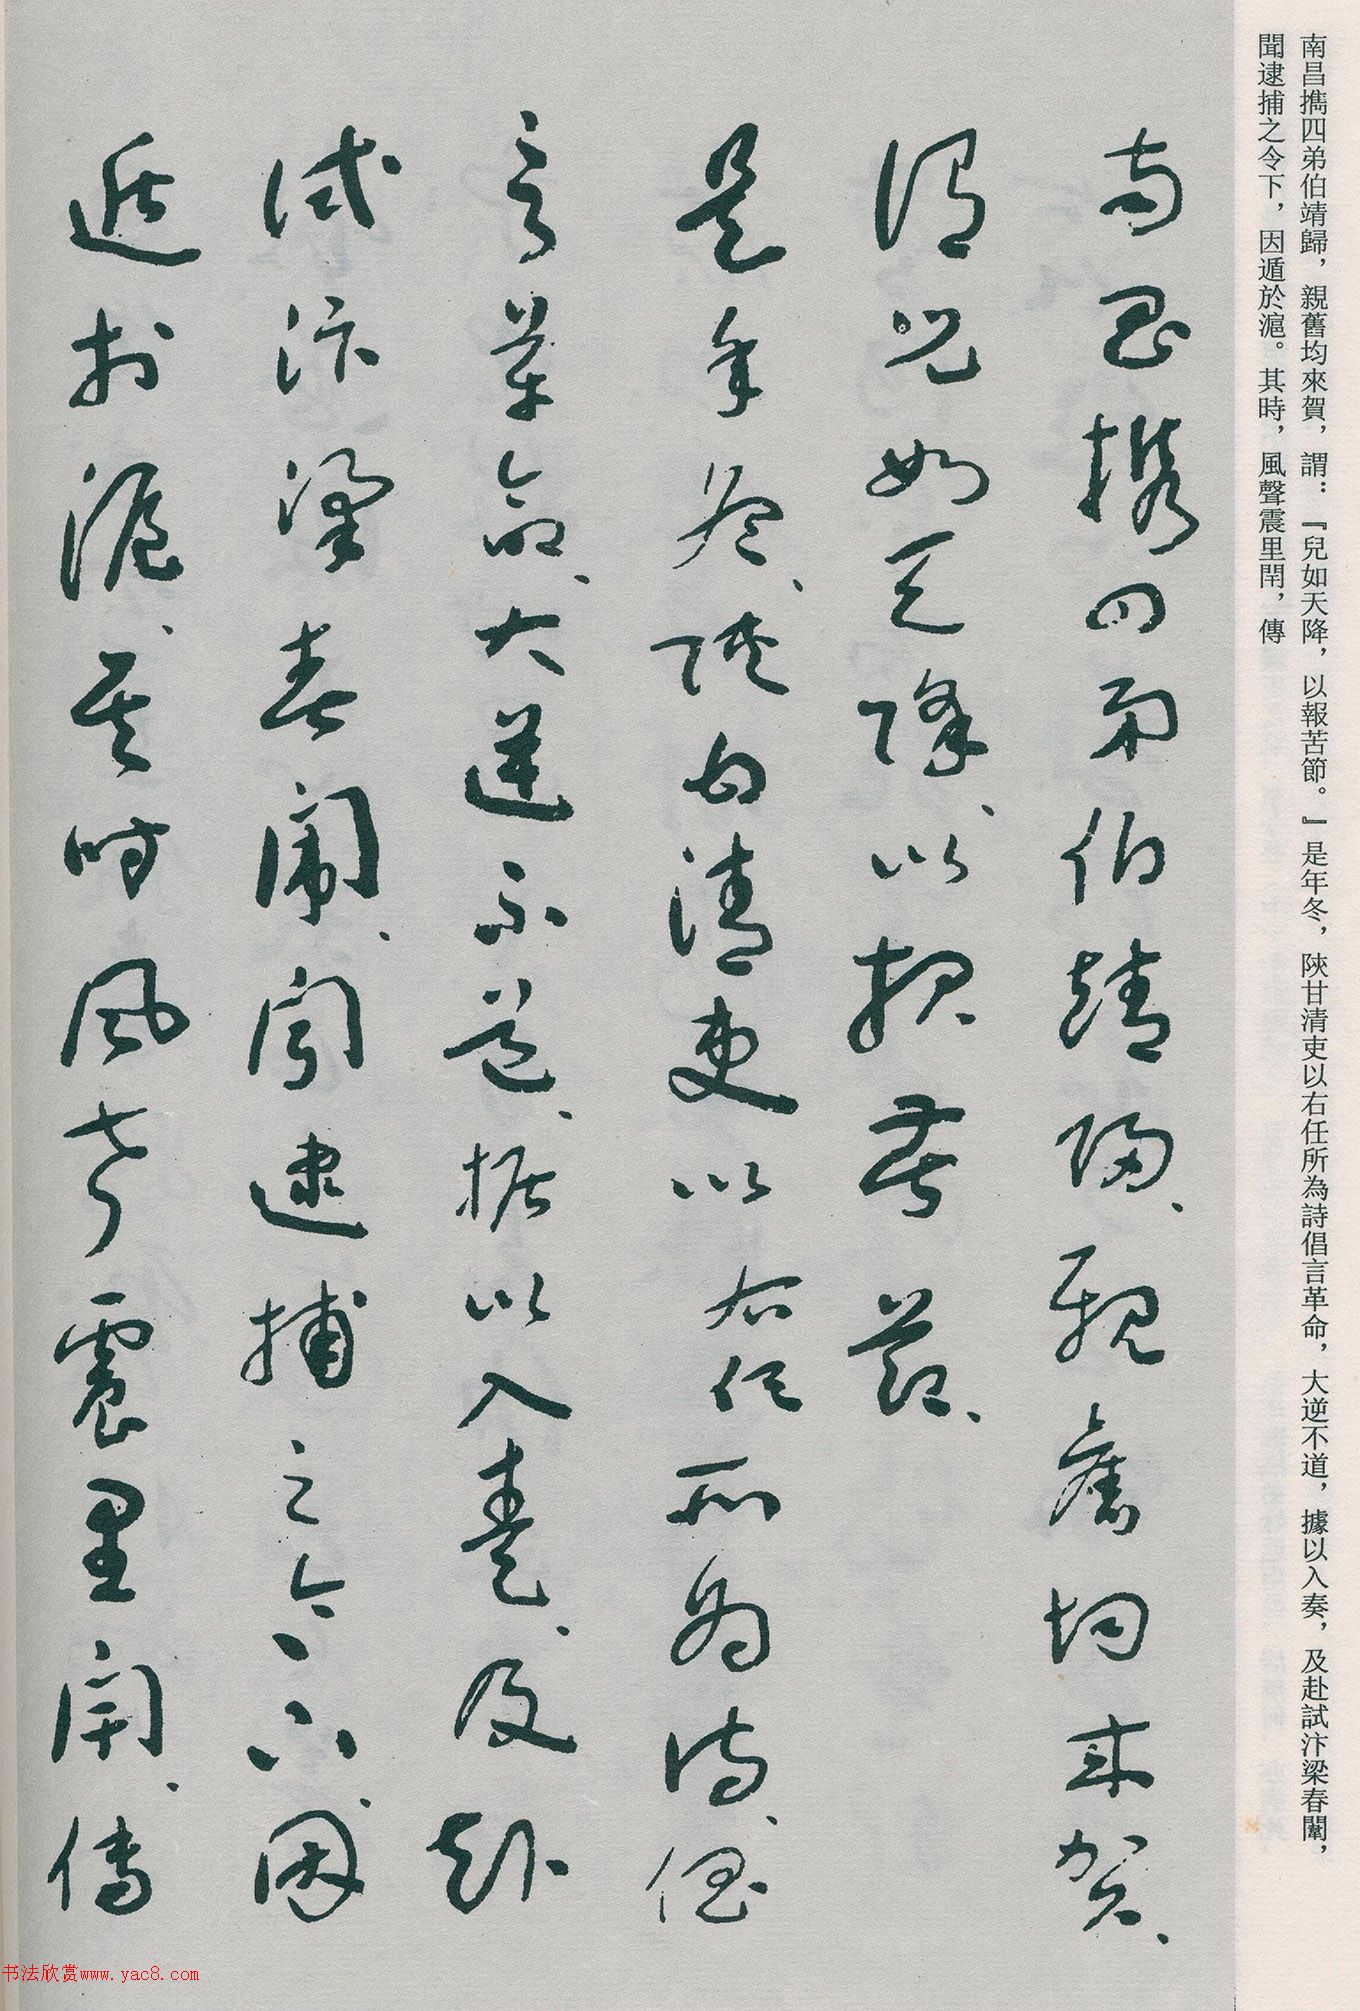 南昌攜四弟伯靖歸，親舊均來賀，謂：『兒如天降，以報苦節。』是年冬，陝甘清吏以右任所為詩倡言革命，大逆不道，據以入奏，及赴試汴梁春闈，
聞逮捕之令下，因遁於滬。其時，風聲震里閈，傳
南昌攜四弟伯靖歸、親舊均來賀、
謂兒如天降、以報苦節、
是年冬、陝甘清吏以右任所為詩、倡
言革命、大逆不道、據以入奏、及赴
試汴梁春闈、聞逮捕之令下、因
遁於滬、其時風聲震里閈、傳
书法欣赏www.yac8.com